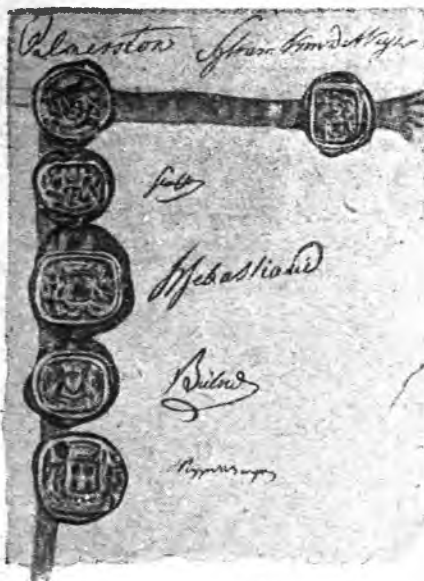 Palmerston Sylvain Van de Weyer
Senfft
H Sebastiani
Bülow
Pozzo di Borgo